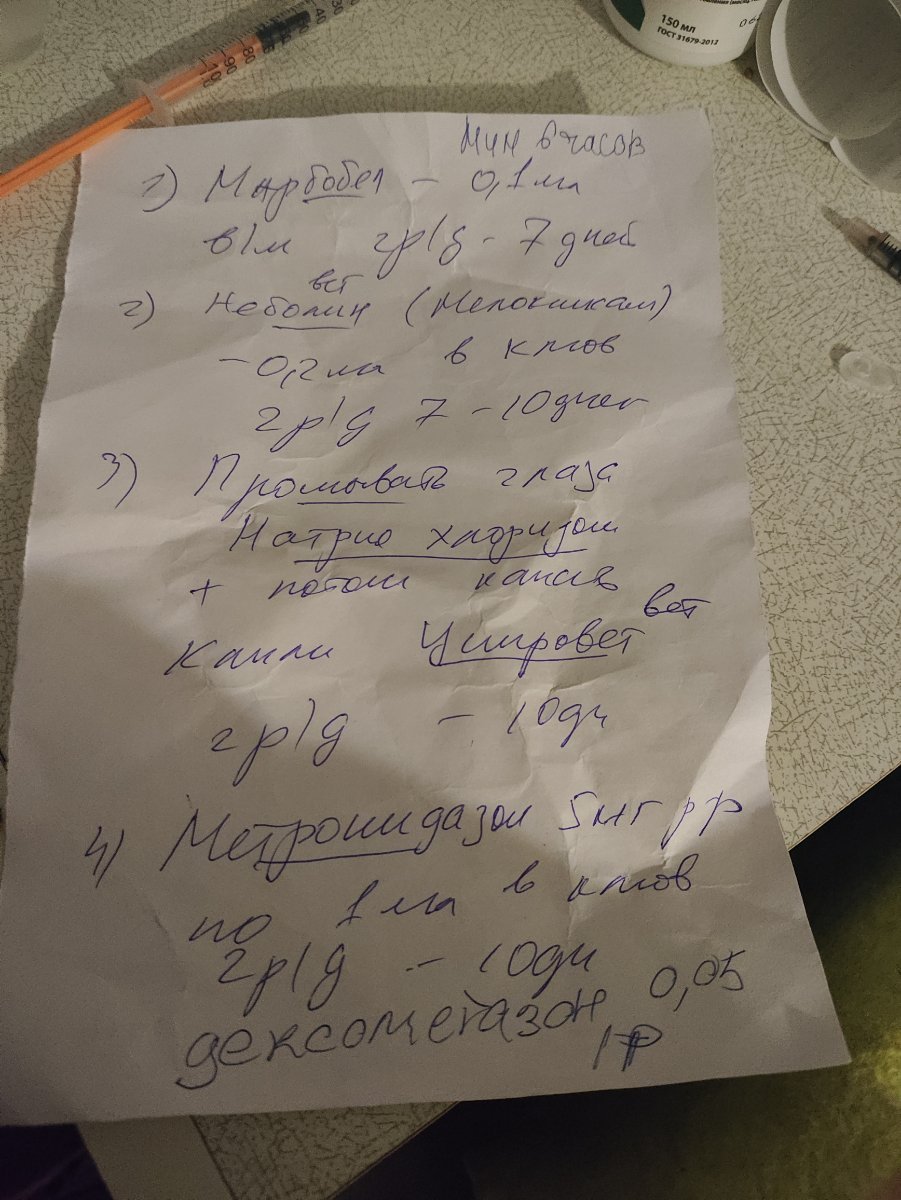 150 мл
ГОСТ 31679-2012
мин 6 часов
1) Марбобел - 0,1 мл
в/м 2р/д - 7 дней
вет
2) Неболин (Мелоксикам)
- 0,2 мл в клюв
2р/д 7 - 10 дней
3) Промывать глаза
Натрио хлоридом
+ потом капать
вет
Капли Ципровет
2р/д - 10дн
4) Метронидазол 5мг р р
по 1 мл в клюв
2р/д - 10дн
дексометазон 0,05
1р